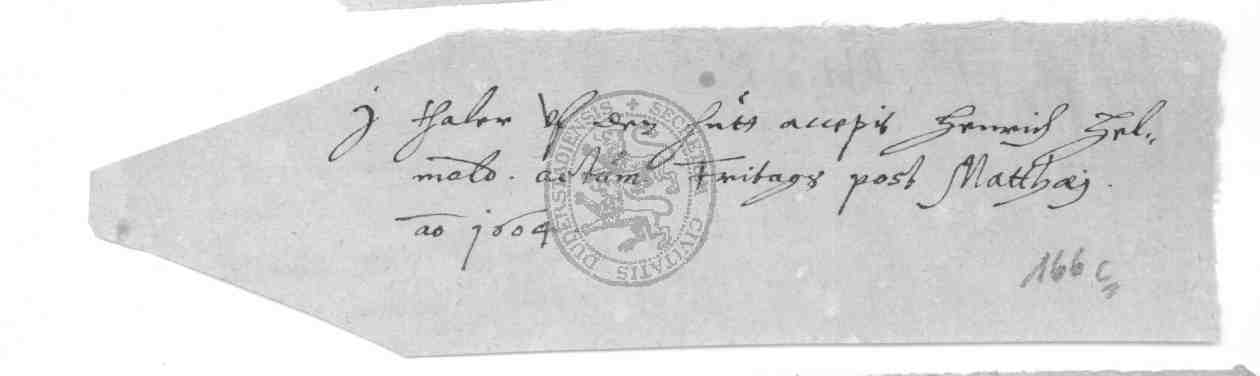 j thaler vf den hütt accepit Henrich Hel-
mold. actum Fritags post Matthaej.
ao 1604
SECRETUM CIVITATIS DUDERSTADIENSIS
166 c